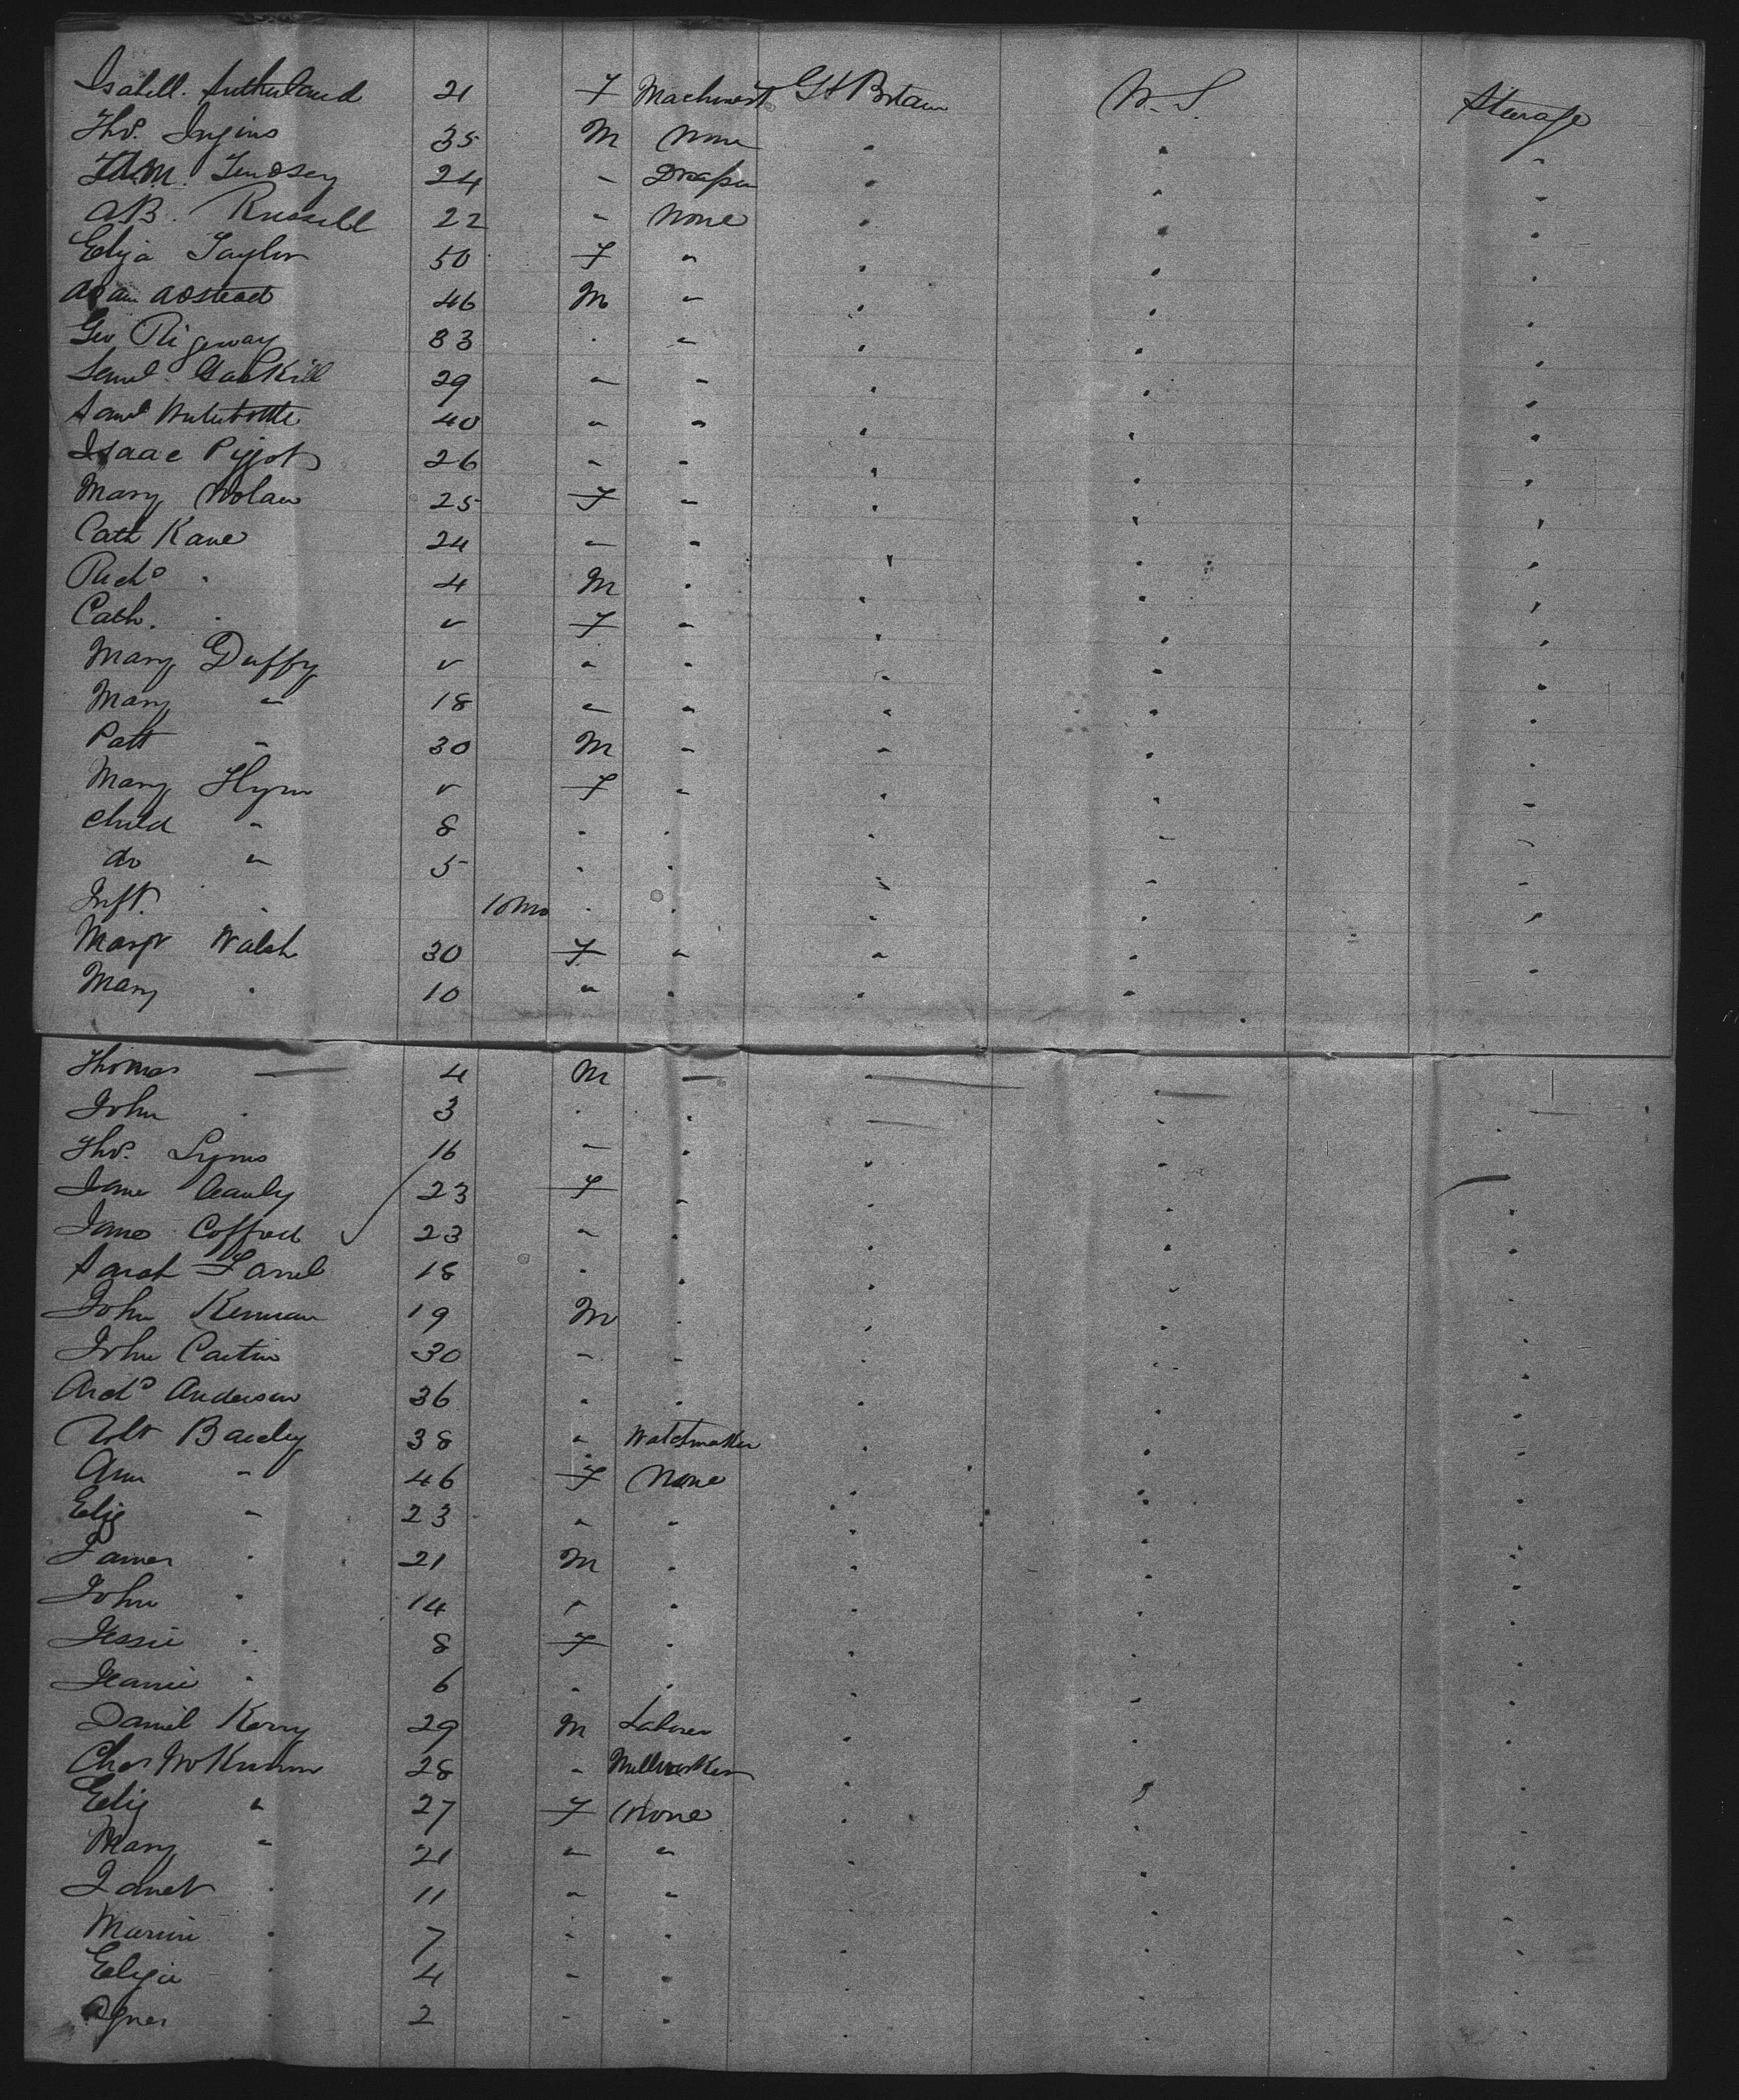 Isabell. Sutherland 21 F Machinest Gt Britain U.S. Steerage
Thos. Ingins 35 M None " " "
Lindsey 24 " Draper " " "
AB. Russell 22 " None " " "
Eliza Taylor 50 F " " " "
Adam 46 M " " " "
Geo Rigeway 33 " " " " "
Saml Gaskill 29 " " " " "
Saml 40 " " " " "
Isaac Piggot 26 " " " " "
Mary Nolan 25 F " " " "
Cath Kane 24 " " " " "
Richd " 4 M " " " "
Cath. " v F " " " "
Mary Duffy v " " " " "
Mary " 18 " " " " "
Patt " 30 M " " " "
Mary Flynn v F " " " "
child " 8 " " " " "
do " 5 " " " " "
Inft. " 10 mo " " " " "
Margt Walsh 30 F " " " "
Mary " 10 " " " " "
Thomas " 4 M " " "
John " 3 " " " " "
Thos. Lyons 16 " " " "
Jane 23 F " " " "
Jane 23 " " " " "
Sarah Farrel 18 " " " " "
John 19 M " " " "
John 30 " " " " "
Archd Anderson 36 " " " " "
Robt 38 " Watchmaker " " "
Ann " 46 F None " " "
Eliz " 23 " " " " "
James " 21 M " " " "
John " 14 " " " " "
Jessie " 8 F " " " "
Jeanie " 6 " " " " "
Daniel Kerry 29 M Laborer " " "
Chas 28 " Millworker " " "
Eliz " 27 F None " " "
Mary " 21 " " " " "
Janet " 11 " " " " "
" 7 " " " " "
Eliza " 4 " " " " "
Agnes " 2 " " " "